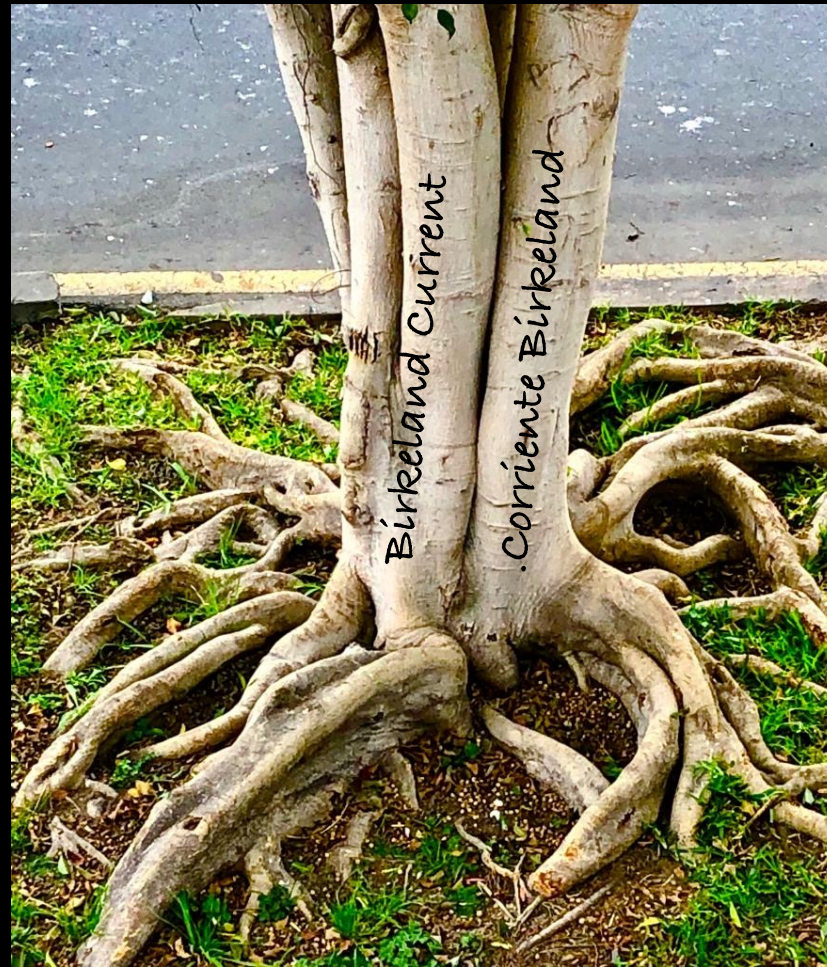 Birkeland Current
.Corriente Birkeland